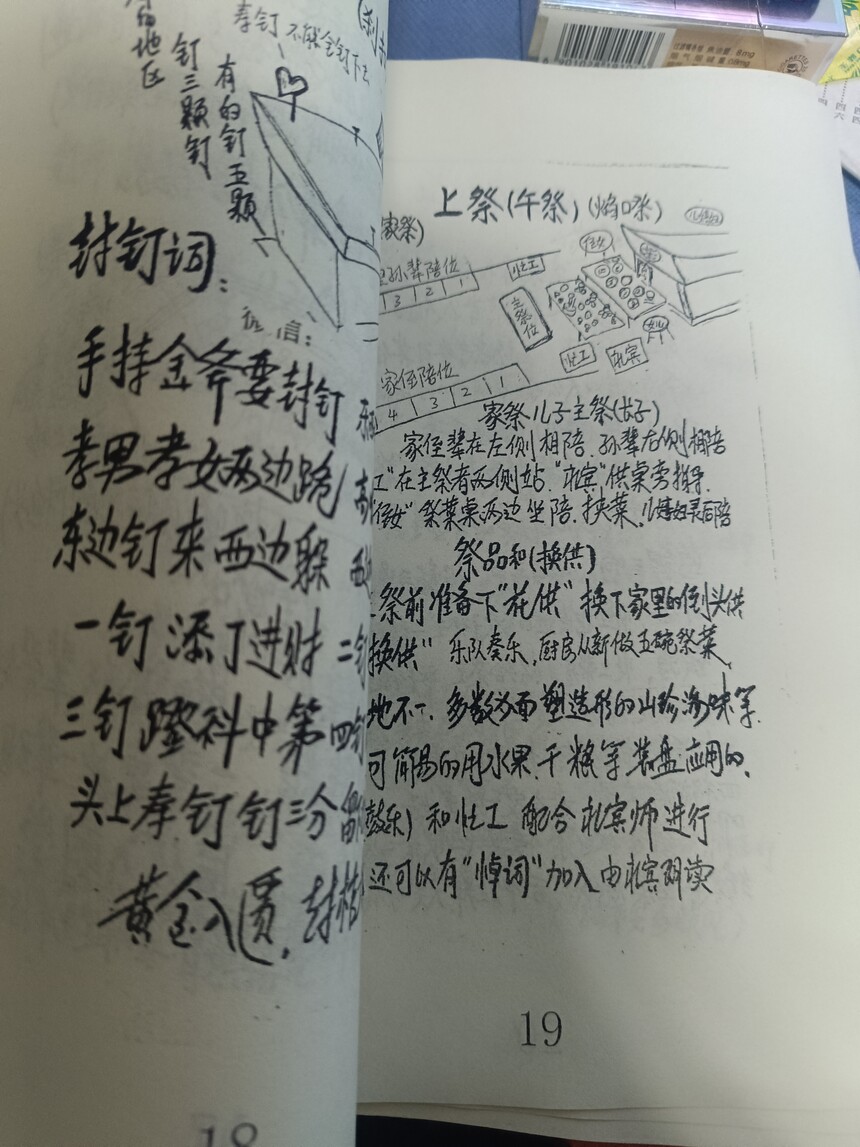 有的地区
钉三颗钉
有的钉五颗
孝钉 不能全钉下去
封钉词:
手持金斧要封钉
孝男孝女两边跪
东边钉来西边躲
一钉添丁进财 二钉
三钉蹬科中第 四钉
头上孝钉钉三分
黄金入匮.封棺
18
上祭(午祭)
家祭)
孙辈陪位
3 2 1
灶工
主祭位
侄女
女儿
灶工
礼宾
家侄陪位
4 3 2 1
家祭儿子主祭(长子)
家侄辈在左侧相陪.孙辈右侧相陪
工"在主祭者两侧站."礼宾"供桌旁指导.
"侄女"祭菜桌两边坐陪.挟菜.儿媳妇灵后陪
祭品和(换供)
祭前准备下"花供"换下家里的倒头供
换供" 乐队奏乐.厨房从新做五碗祭菜,
地不一、多数为面塑造形的山珍海味等.
可简易的用水果.干粮等装盘应用的、
鼓乐)和灶工 配合礼宾师进行
还可以有"悼词"加入由礼宾朗读
19